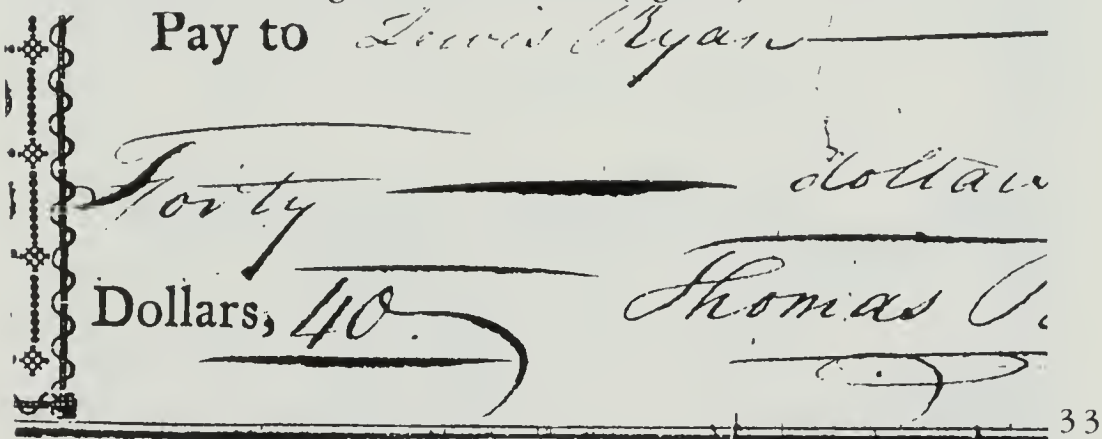 Pay to Lewis Ryan
Forty dollars
Dollars, 40.
Thomas P.
33